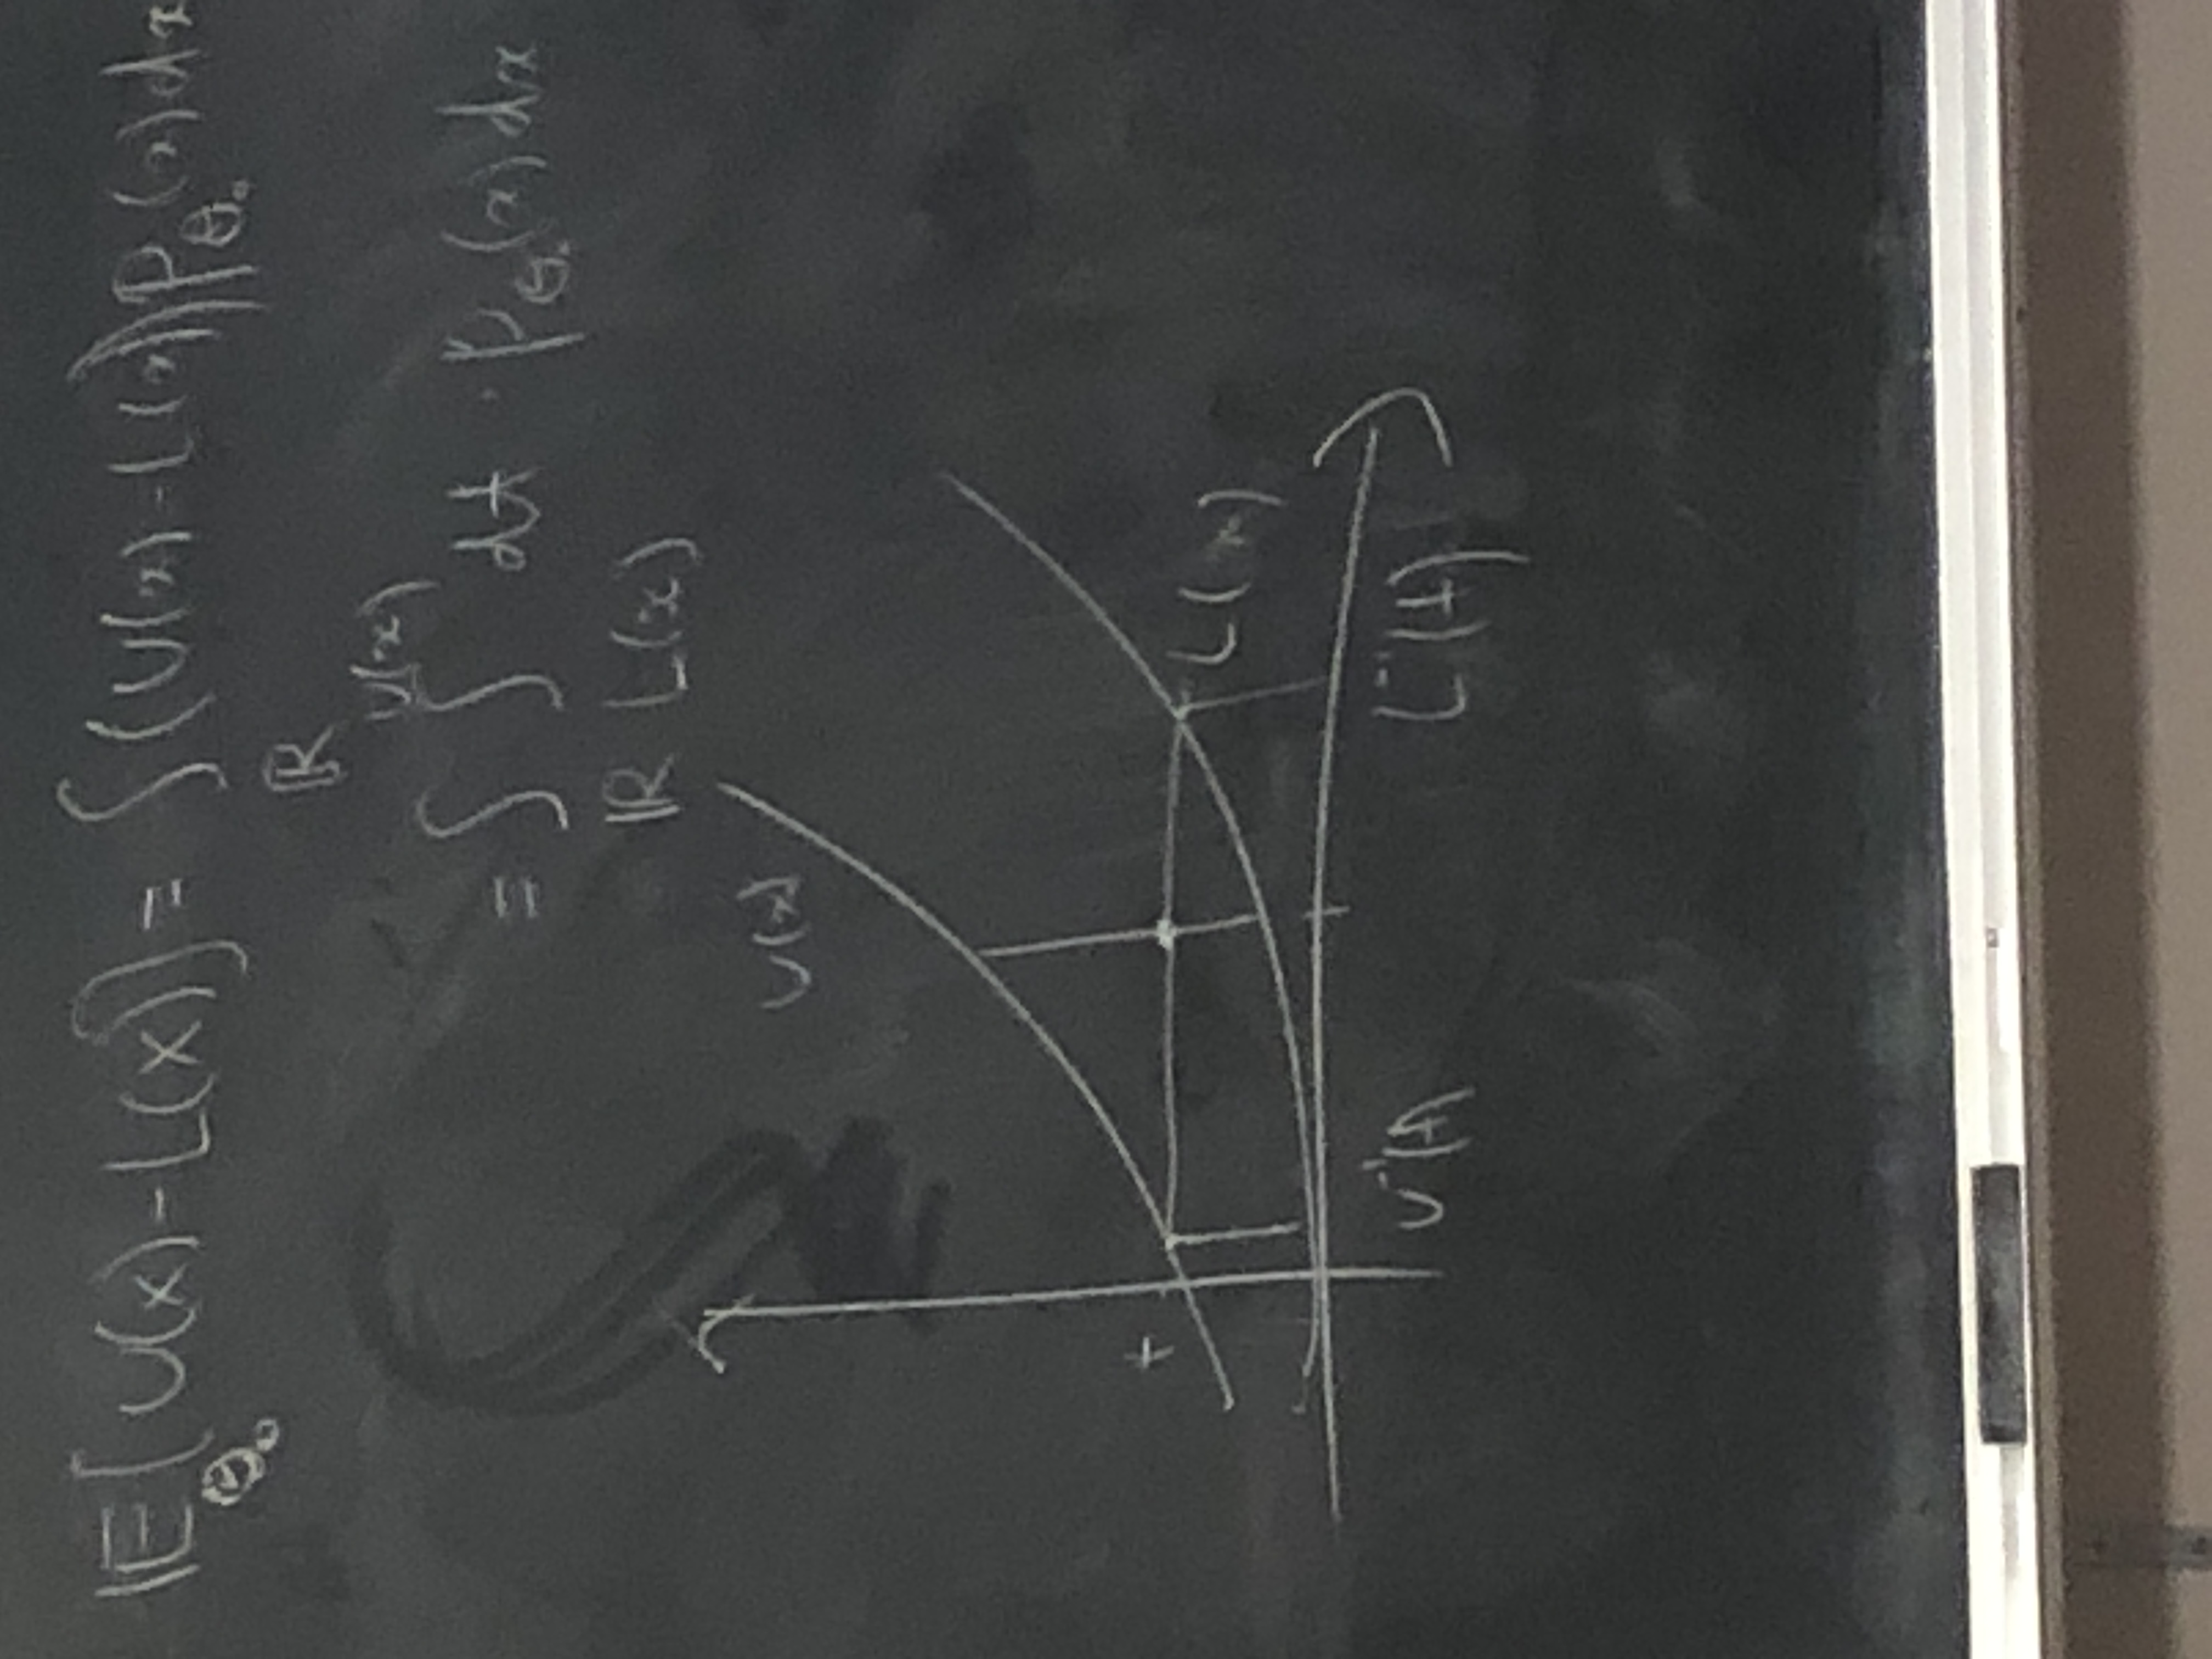 𝔼_θ₀[U(X)-L(X)] = ∫_ℝ (U(x)-L(x)) p_θ₀(x) dx
= ∫_ℝ ∫_{L(x)}^{U(x)} dt · p_θ₀(x) dx
U(x)
t
L(x)
U⁻¹(t) L⁻¹(t)